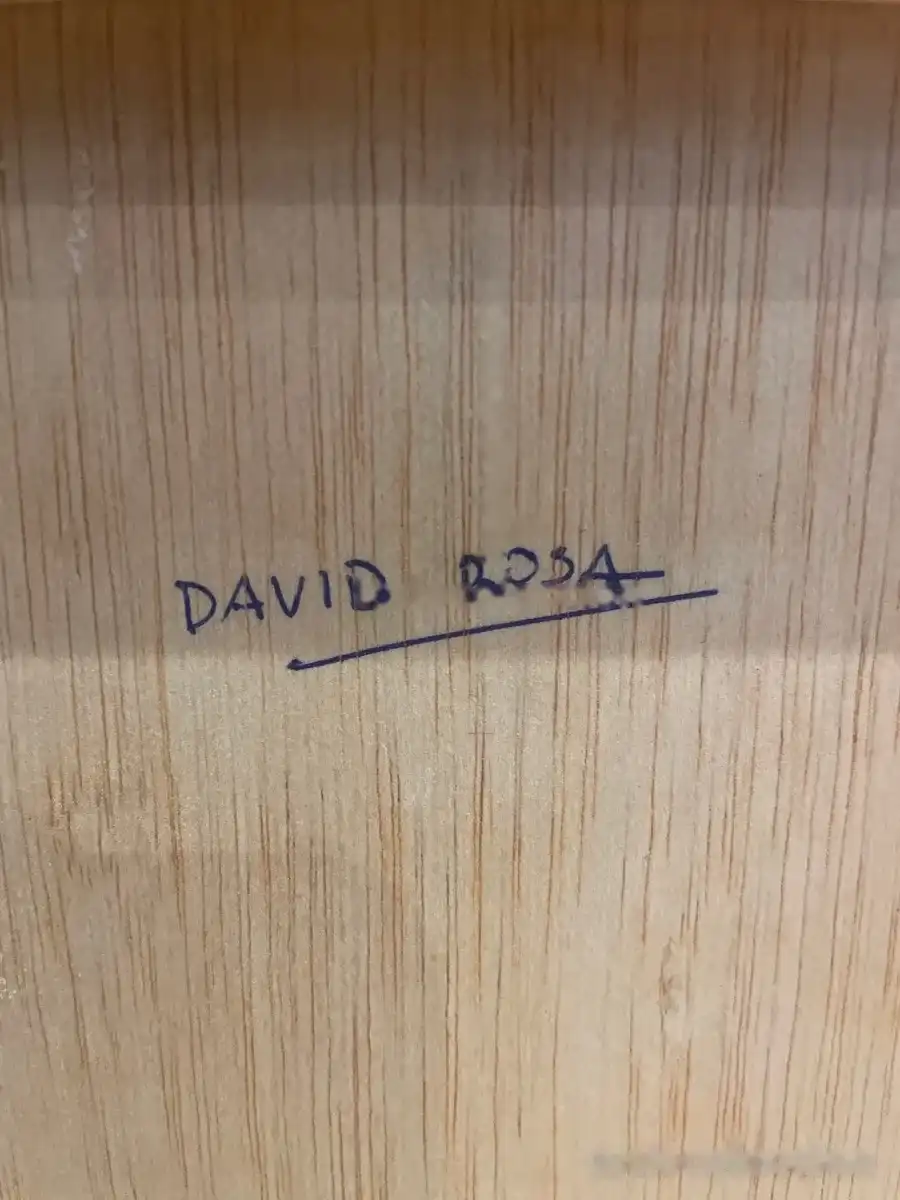 DAVID ROSA